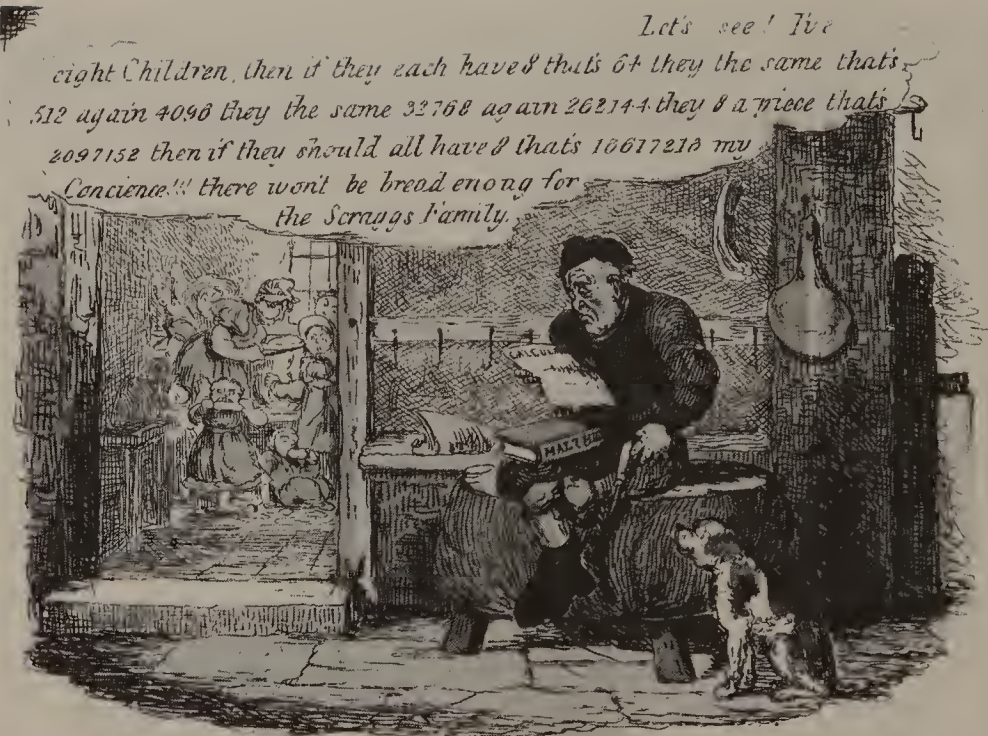 Let's see! I've
eight Children, then if they each have 8 that's 64 they the same that's
512 again 4096 they the same 32768 again 262144 they 8 a piece that's
2097152 then if they should all have 8 that's 16617216 my
Concience!!! there won't be bread enoug for
the Scraggs Family.
CALCUL
MALTHUS